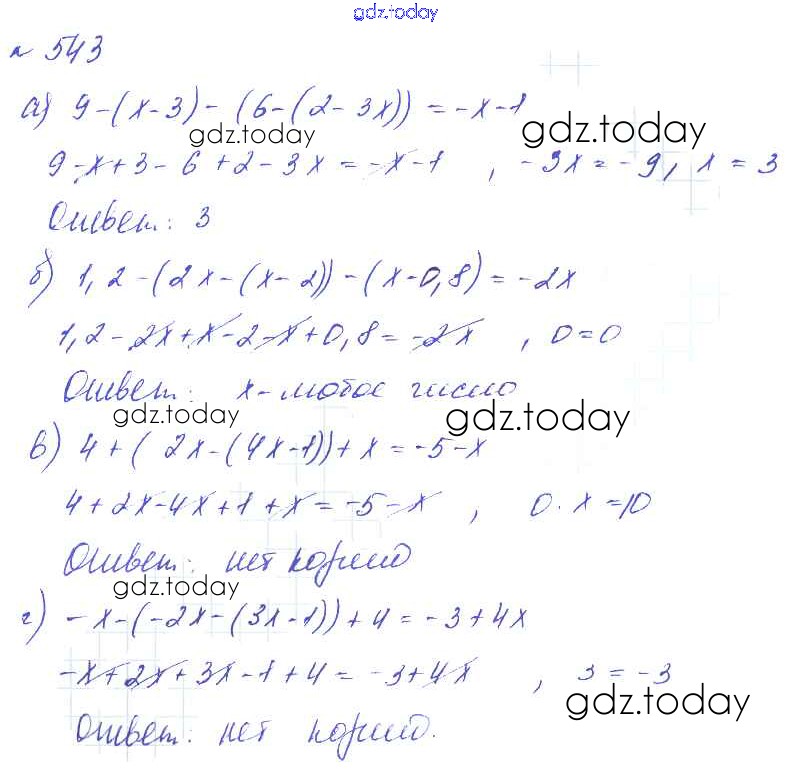 gdz.today
№ 543
а) 9-(x-3)-(6-(2-3x)) = -x-1
gdz.today gdz.today
9-x+3-6+2-3x = -x-1 , -3x = -9, x = 3
Ответ: 3
б) 1,2-(2x-(x-2))-(x-0,8) = -2x
1,2-2x+x-2-x+0,8 = -2x , 0=0
Ответ: x-любое число
gdz.today gdz.today
в) 4+(2x-(4x-1))+x = -5-x
4+2x-4x+1+x = -5-x , 0·x=10
Ответ: нет корней
gdz.today
г) -x-(-2x-(3x-1))+4 = -3+4x
-x+2x+3x-1+4 = -3+4x , 3 = -3
gdz.today
Ответ: нет корней.